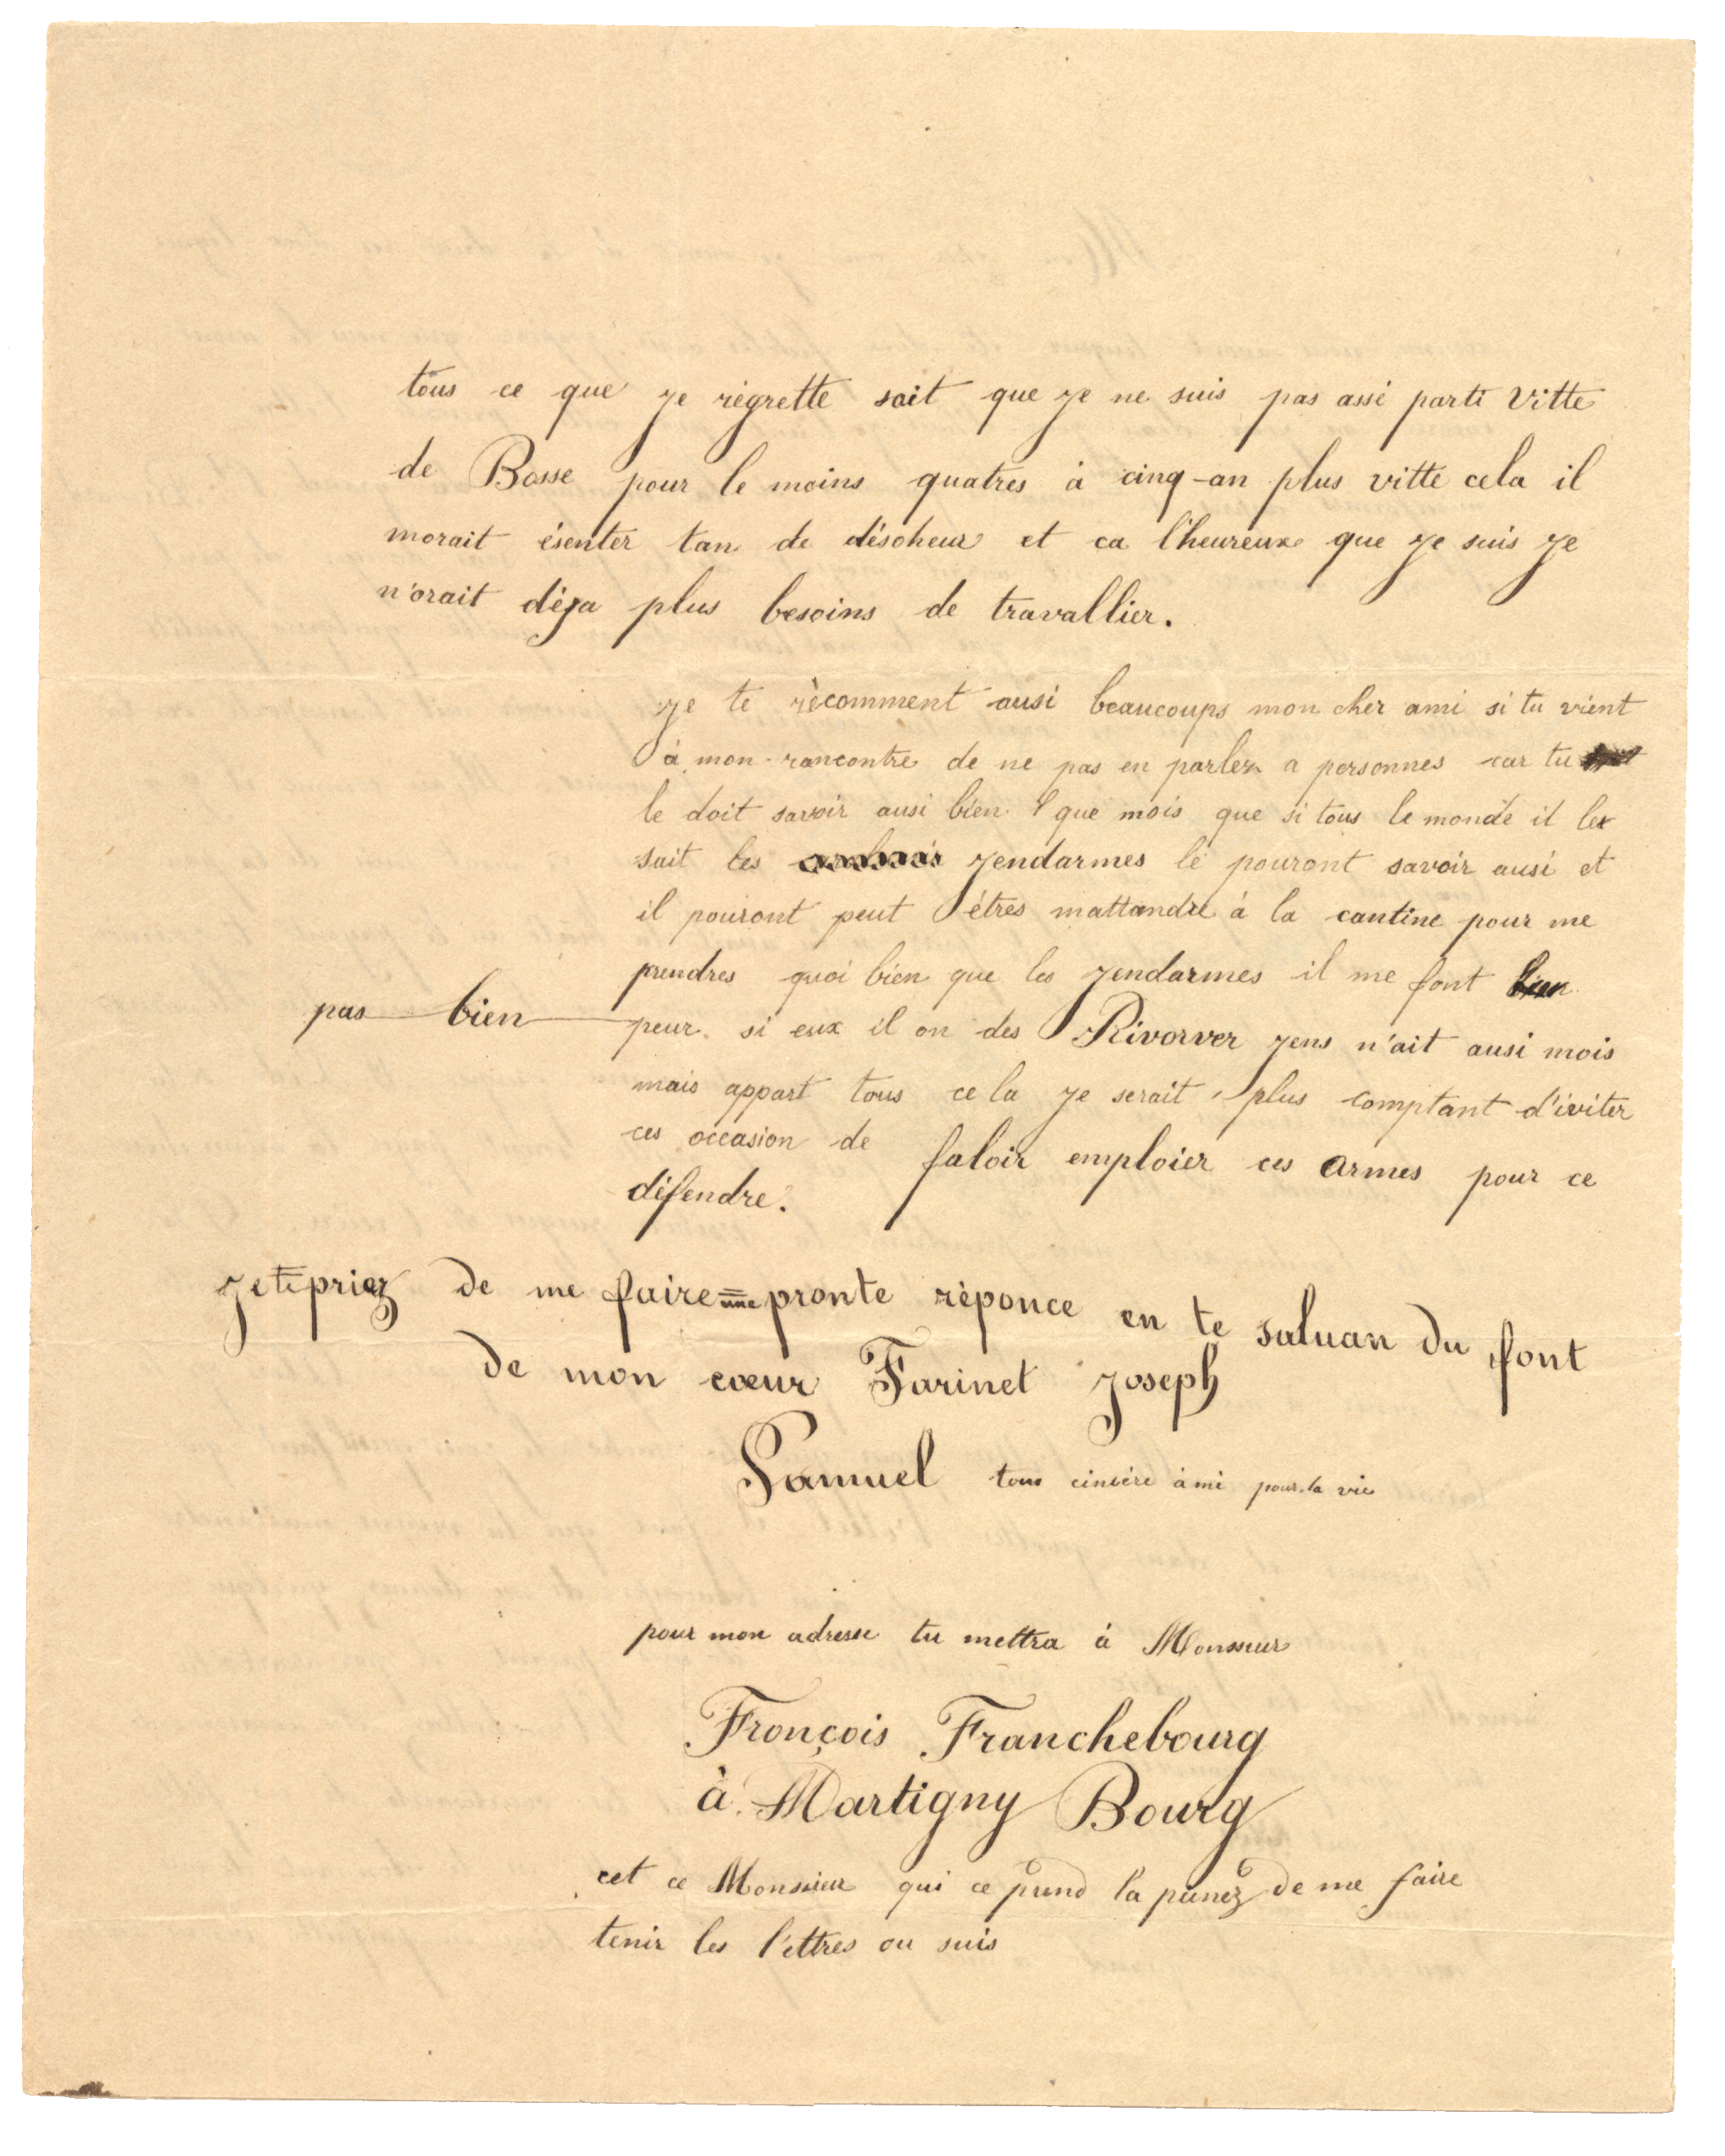 tous ce que je régrette sait que je ne suis pas assé parti Vitte
de Bosse pour le moins quatres à cinq-an plus vitte cela il
morait ésenter tan de désoheur et ca l'heureux que je suis je
n'orait déja plus besoins de travallier.
je te récomment ausi beaucoups mon cher ami si tu vient
à mon rancontre de ne pas en parler a personnes car tu
le doit savoir ausi bien que mois que si tous le monde il le
sait les jendarmes le pouront savoir ausi et
il pouront peut êtres mattandre à la cantine pour me
prendres quoi bien que les jendarmes il me font bien
pas bien
peur. si eux il on des Rivorver jens n'ait ausi mois
mais appart tous ce la je serait plus comptant d'éviter
ces occasion de faloir emploier ces armes pour ce
défendre.
je te priez de me faire une pronte réponce en te saluan du font
de mon cœur Farinet Joseph
Samuel tous cincére ami pour la vie
pour mon adresse tu mettra à Monsieur
Fronçois Franchebourg
à Martigny Bourg
cet ce Monsieur qui ce prend la peinez de me faire
tenir les l'ettres ou suis